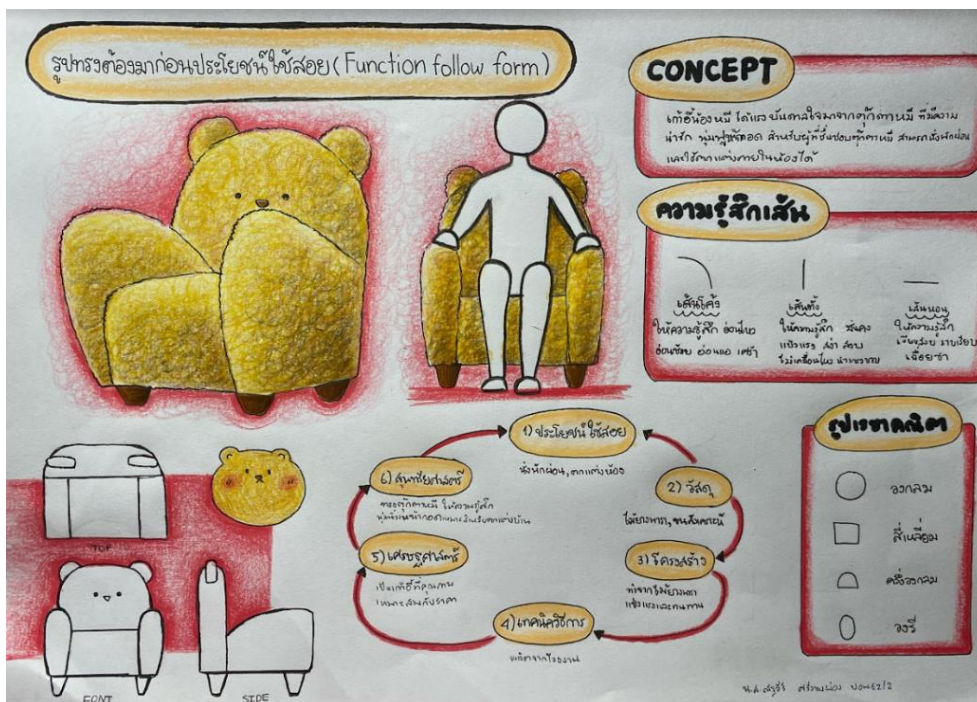 รูปทรงต้องมาก่อนประโยชน์ใช้สอย (Function follow form)
CONCEPT
เก้าอี้น้องหมี ได้แรงบันดาลใจมาจากตุ๊กตาหมี ที่มีความ
น่ารัก นุ่มฟูน่ากอด สำหรับผู้ที่ชื่นชอบตุ๊กตาหมี สามารถนั่งพักผ่อน
และใช้ตกแต่งภายในห้องได้
ความรู้สึกเส้น
เส้นโค้ง
ให้ความรู้สึก อ่อนไหว
อ่อนช้อย อ่อนแอ เศร้า
เส้นตั้ง
ให้ความรู้สึก มั่นคง
แข็งแรง สง่า สงบ
ไม่เคลื่อนไหว
เส้นนอน
ให้ความรู้สึก
เงียบสงบ ราบเรียบ
เฉื่อยชา
1) ประโยชน์ใช้สอย
นั่งพักผ่อน, ตกแต่งห้อง
2) วัสดุ
ไม้ยางพารา, ขนสังเคราะห์
3) โครงสร้าง
ทำจากไม้ยางพารา
แข็งแรงและทนทาน
4) เทคนิควิธีการ
ผลิตจากโรงงาน
5) เศรษฐศาสตร์
เป็นเก้าอี้ที่คุณภาพ
เหมาะสมกับราคา
6) สุนทรียศาสตร์
ทรงตุ๊กตาหมี ให้ความรู้สึก
นุ่มนิ่มน่ากอดเหมาะสำหรับตกแต่งบ้าน
รูปเรขาคณิต
วงกลม
สี่เหลี่ยม
ครึ่งวงกลม
วงรี
TOP
FONT
SIDE